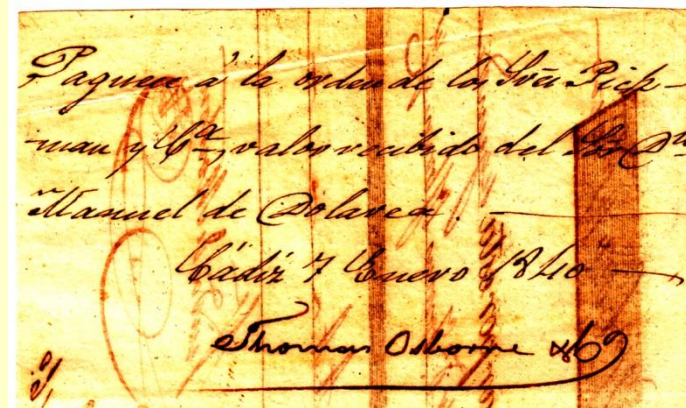 Paguese á la orden de los Sres Pick-
man y Ca, valor recibido del Sor Dn
Manuel de Dolarea.
Cádiz 7 Enero 1840
Thomas Osborne &Co